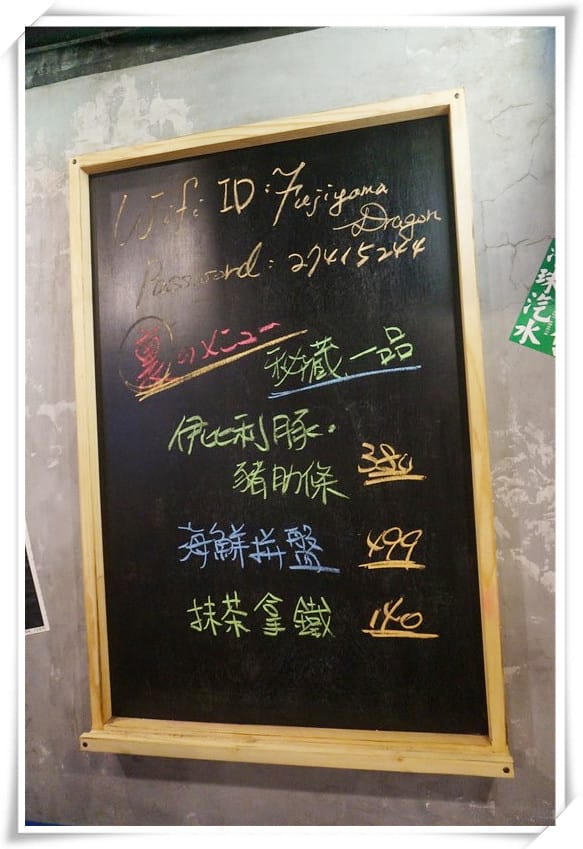 Wifi ID: Fujiyama
Dragon
Password: 27415244
裏のメニュー
秘藏一品
伊比利豚・
豬助條 380
海鮮拼盤 499
抹茶拿鐵 140
汽水